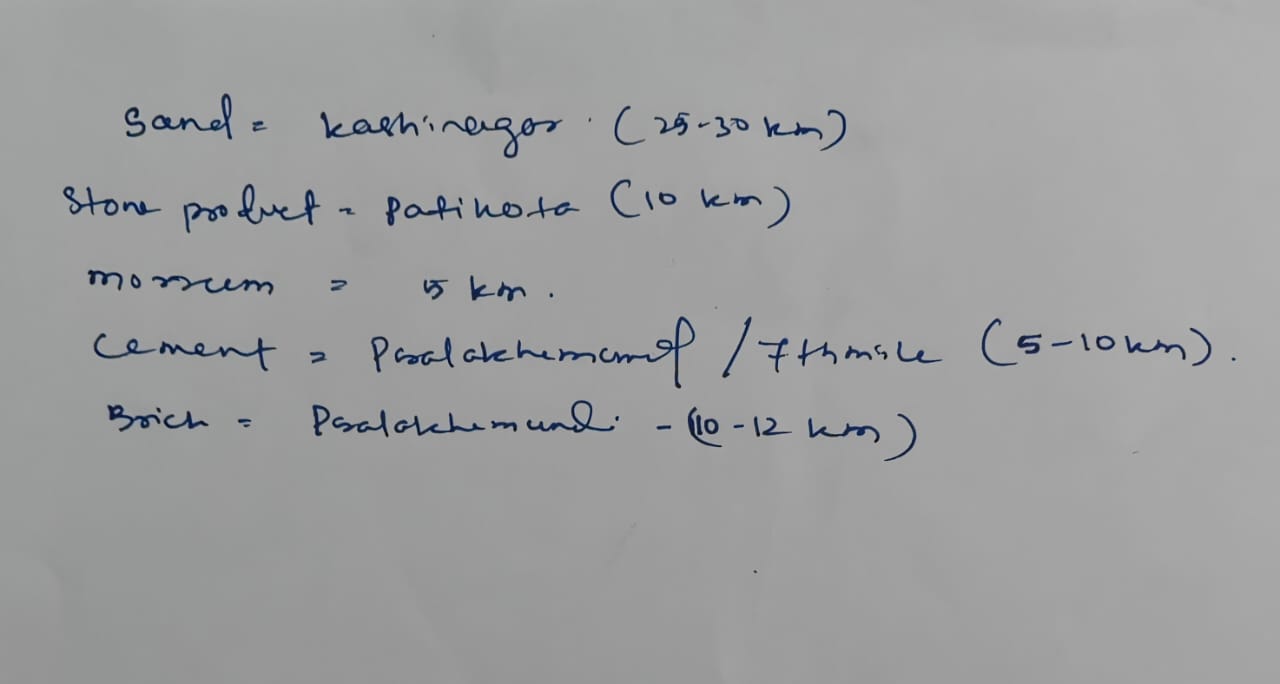 Sand = Kashinagar. (25-30 km)
Stone product = Patikota (10 km)
Morrum = 5 km.
Cement = Paralakhemundi / 7th mile (5-10 km).
Brick = Paralakhemundi - (10-12 km)